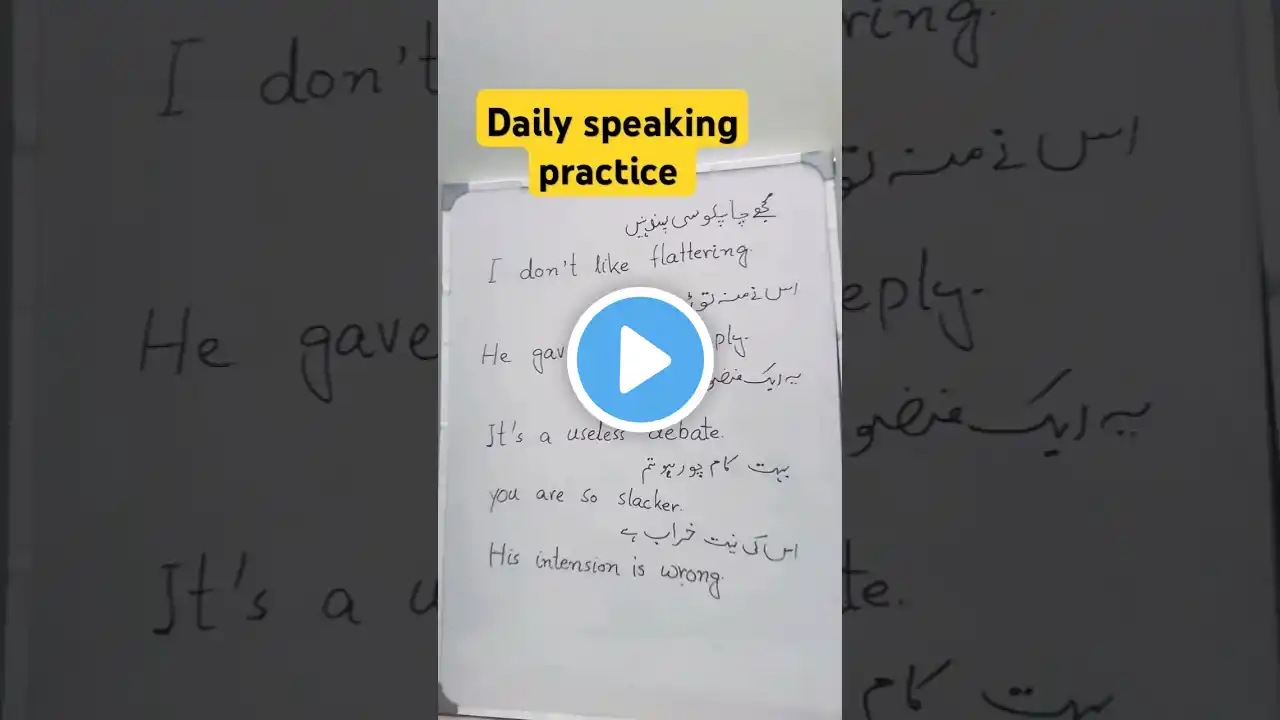 Daily speaking
practice
مجھے چاپلوسی پسند نہیں
I don't like flattering.
اس نے منہ تو
He gave reply.
یہ ایک فضو
It's a useless debate.
بہت کام چور ہو تم
you are so slacker.
اس کی نیت خراب ہے
His intension is wrong.